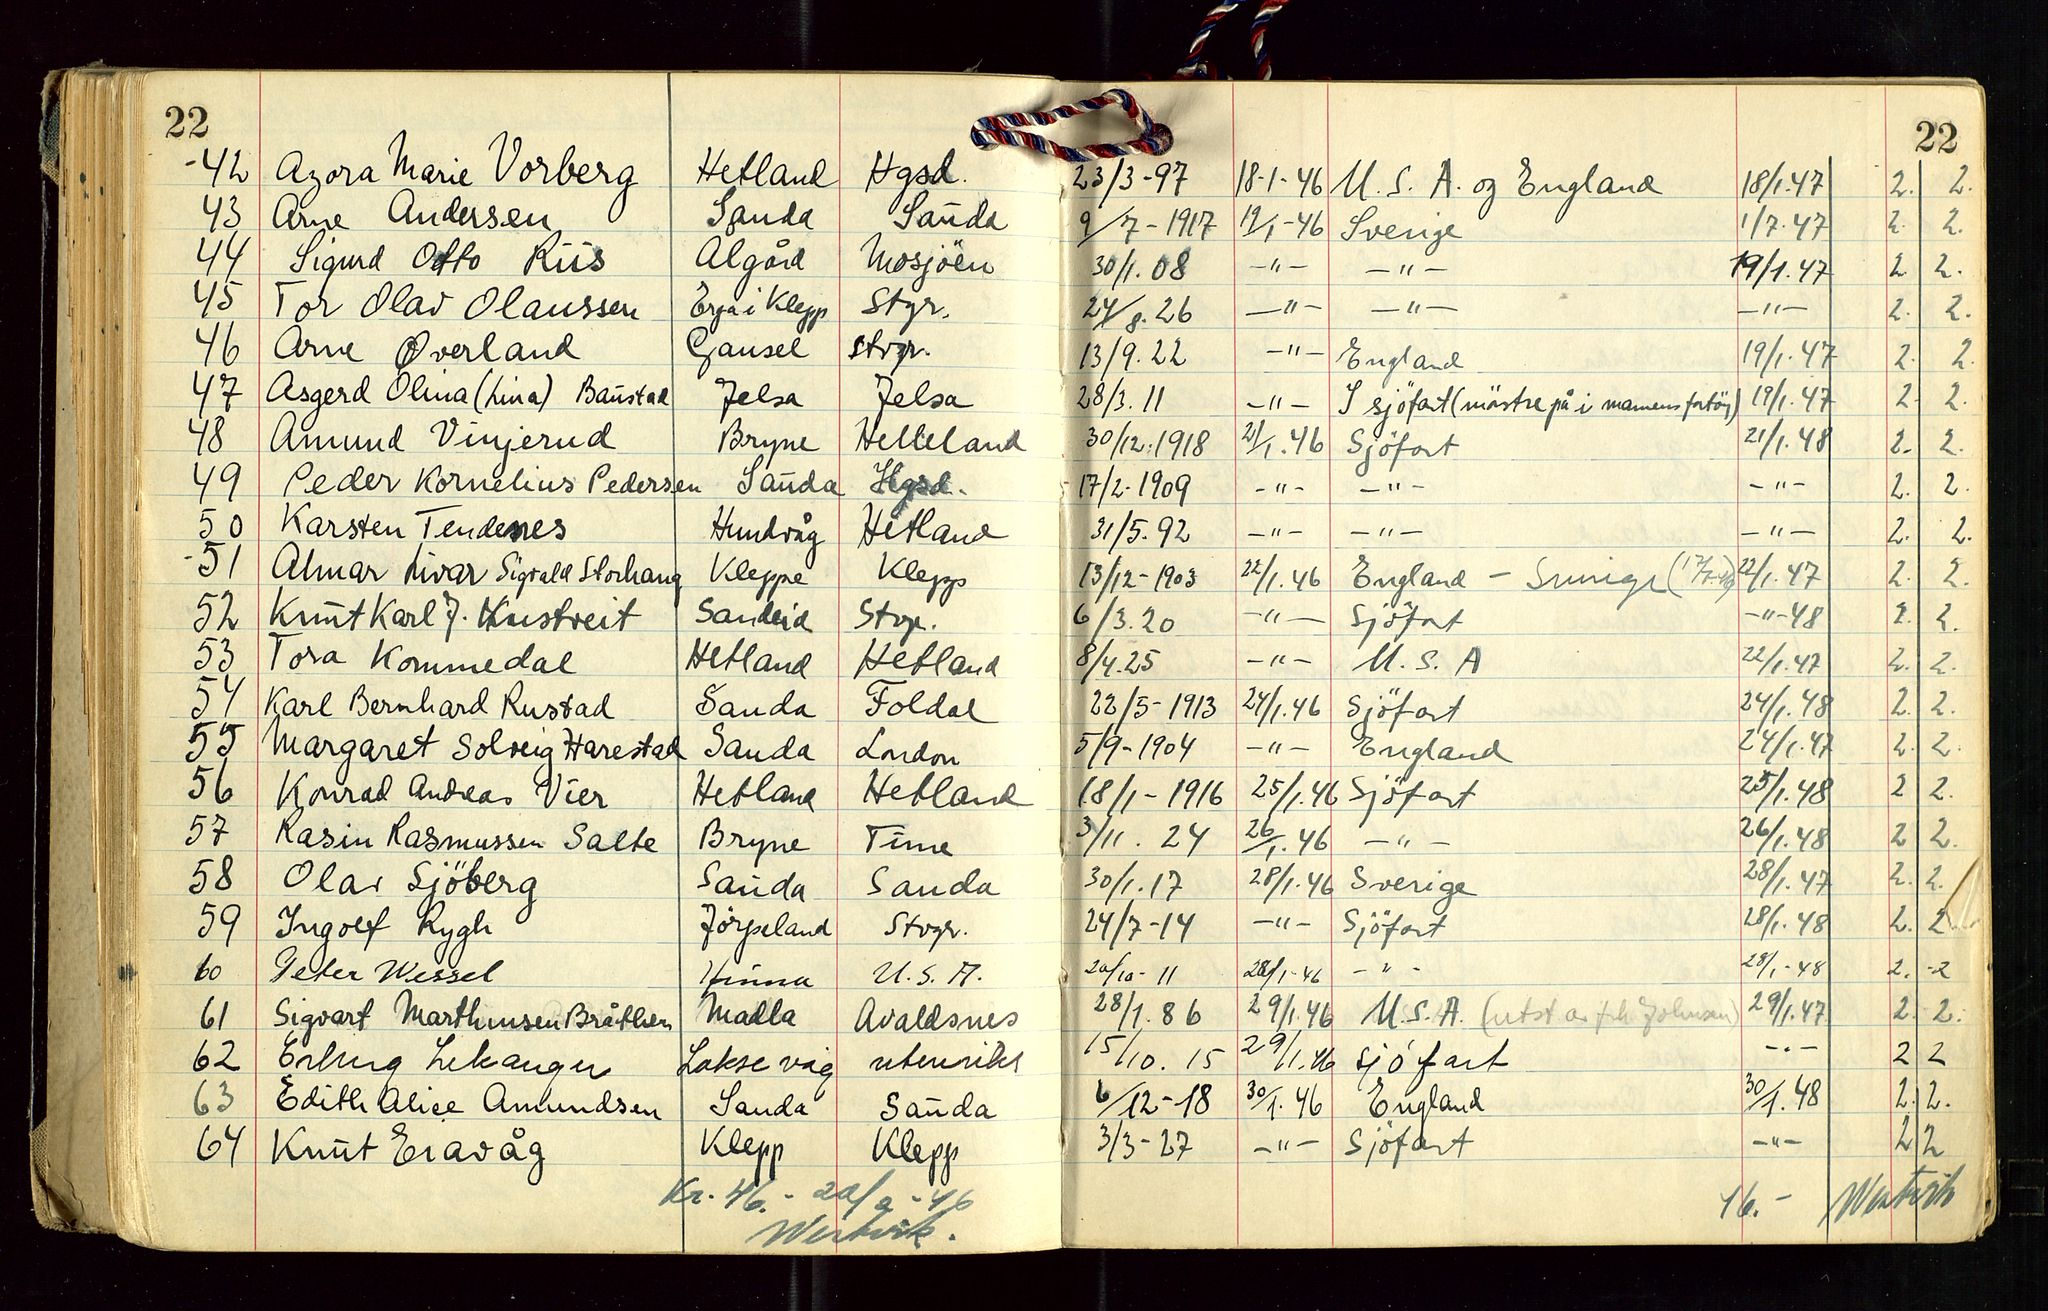 22 22
-42 Azora Marie Vorberg Hetland Hgsd. 23/3-97 18-1-46 U.S.A. og England 18/1.47 2. 2.
43 Arne Andersen Sauda Sauda 9/7-1917 19/1-46 Sverige 1/7.47 2. 2.
44 Sigurd Otto Riis Algård Mosjöen 30/1.08 -"- -"- 19/1.47 2 2.
45 Tor Olav Olaussen Erga i Klepp Stgr. 24/8.26 -"- -"- -"- 2. 2.
46 Arne Øverland Gausel Stvgr. 13/9.22 -"- England 19/1.47 2. 2.
47 Asgerd Olina (Lina) Baustad Jelsa Jelsa 28/3.11 -"- I sjöfart (mönstre på i mannens fartöy) 19/1.47 2. 2.
48 Amund Vinjerud Bryne Helleland 30/12.1918 21/1.46 Sjöfart 21/1.48 2. 2.
49 Peder Kornelius Pedersen Sauda Hgsd. 17/2-1909 -"- -"- -"- 2. 2.
50 Karsten Tendenes Hundvåg Hetland 31/5.92 -"- -"- -"- 2. 2.
-51 Almar Livar Sigvald Storhaug Kleppe Klepp 13/12-1903 22/1.46 England - 22/1.47 2. 2.
52 Knut Karl J. Sandeid Stvgr. 6/3.20 -"- Sjöfart -"-48 2. 2.
53 Tora Kommedal Hetland Hetland 8/4.25 -"- U.S.A 22/1.47 2. 2.
54 Karl Bernhard Rustad Sauda Foldal 22/5-1913 24/1.46 Sjöfart 24/1.48 2. 2.
55 Margaret Solveig Harestad Sauda London 5/9-1904 -"- England 24/1.47 2. 2.
56 Konrad Andreas Vier Hetland Hetland 18/1-1916 25/1.46 Sjöfart 25/1.48 2 2.
57 Rasin Rasmussen Salte Bryne Time 3/11.24 26/1.46 -"- 26/1.48 2 2.
58 Olav Sjöberg Sauda Sauda 30/1.17 28/1.46 Sverige 28/1.47 2. 2.
59 Ingolf Rygh Jörpeland Stvgr. 24/7-14 -"- Sjöfart 28/1.48 2. 2
60 Peter Wessel Hinna U.S.A. 20/10-11 28/1-46 -"- 28/1-48 2. -2
61 Sigvart Marthinsen Bråthen Madla Avaldsnes 28/1.86 29/1.46 U.S.A. (utst. av frk Johnsen) 29/1.47 2. 2.
62 Erling Lekanger Laksevåg utenriks 15/10.15 29/1.46 sjöfart -"- 2 2
63 Edith Alice Amundsen Sauda Sauda 6/12-18 30/1.46 England 30/1.48 2. 2.
64 Knut Eiavåg Klepp Klepp 3/3-27 -"- Sjöfart -"- 2 2
Kr. 46.- 20/2-46 46.- Westvik
Westvik.